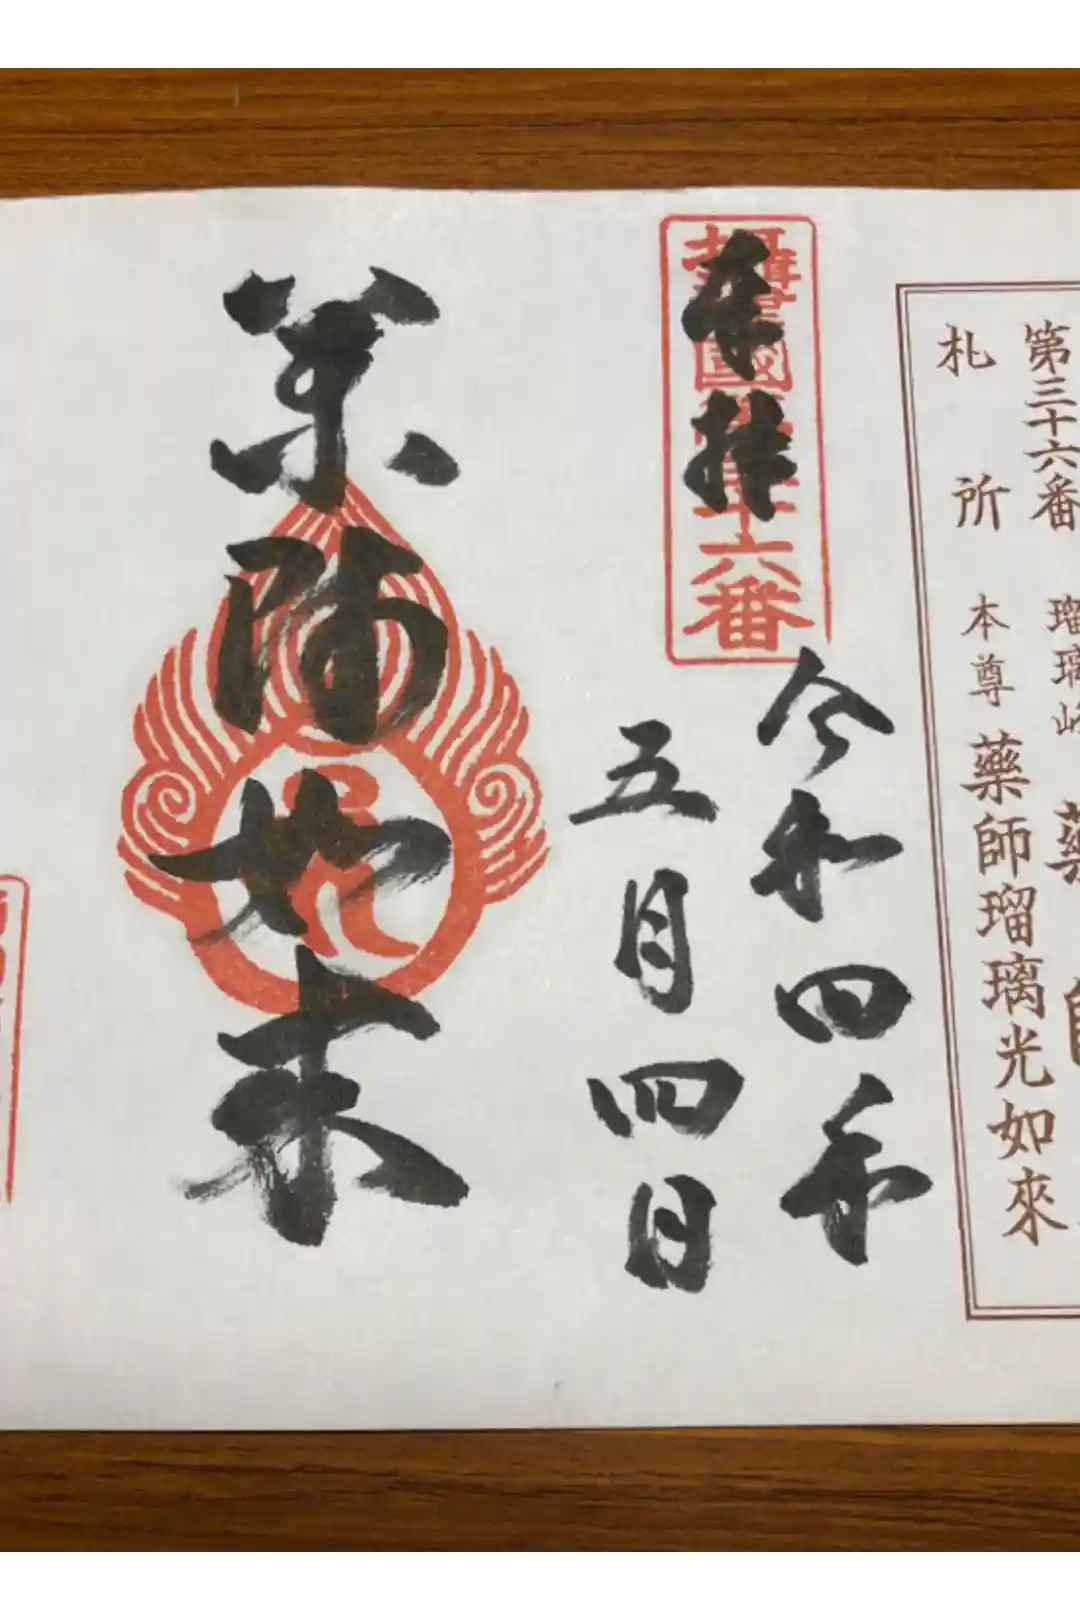 第三十六番 瑠璃山 薬師
札所 本尊 薬師瑠璃光如來
奉拝
六番
令和四年
五月四日
薬師如来